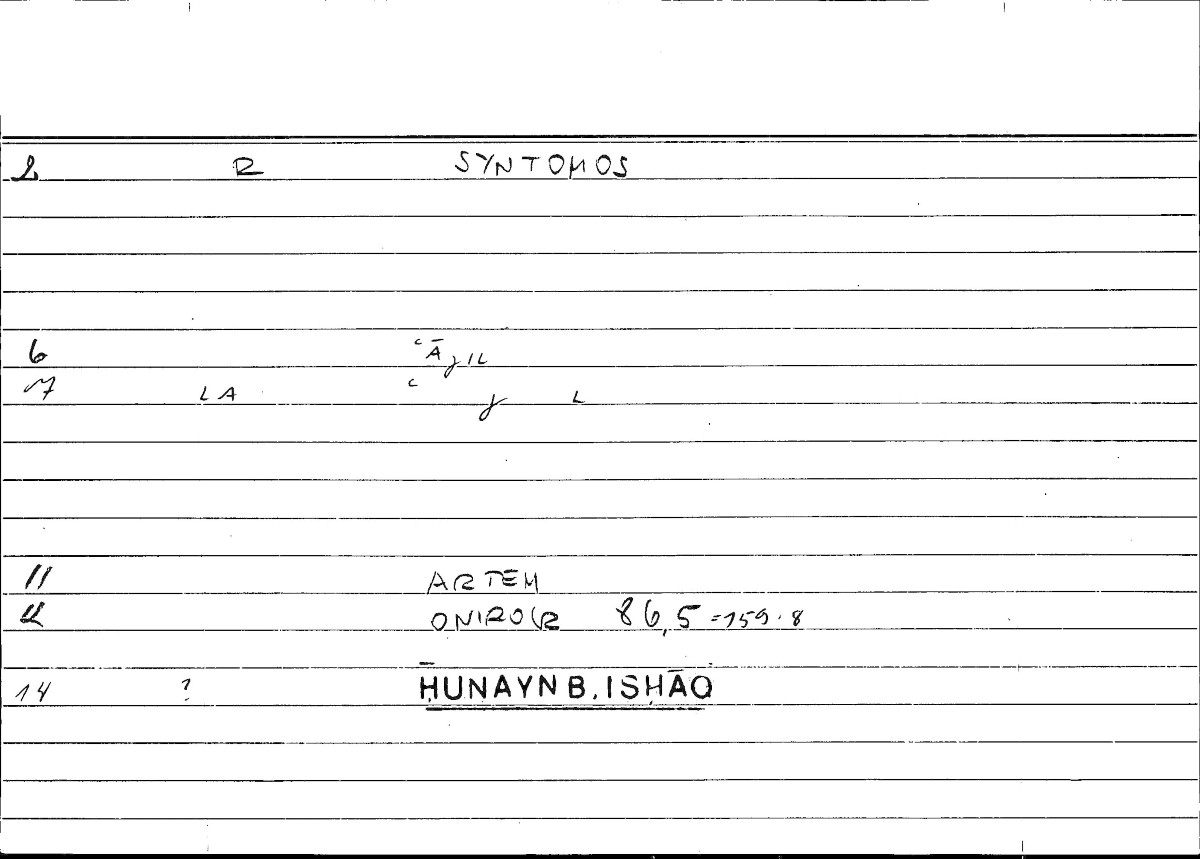 2 R SYNTOMOS
6 ʿĀγIL
7 LA ʿ γ L
11 ARTEM
12 ONIROCR 86,5=159.8
14 ? ḤUNAYN B. ISḤĀQ